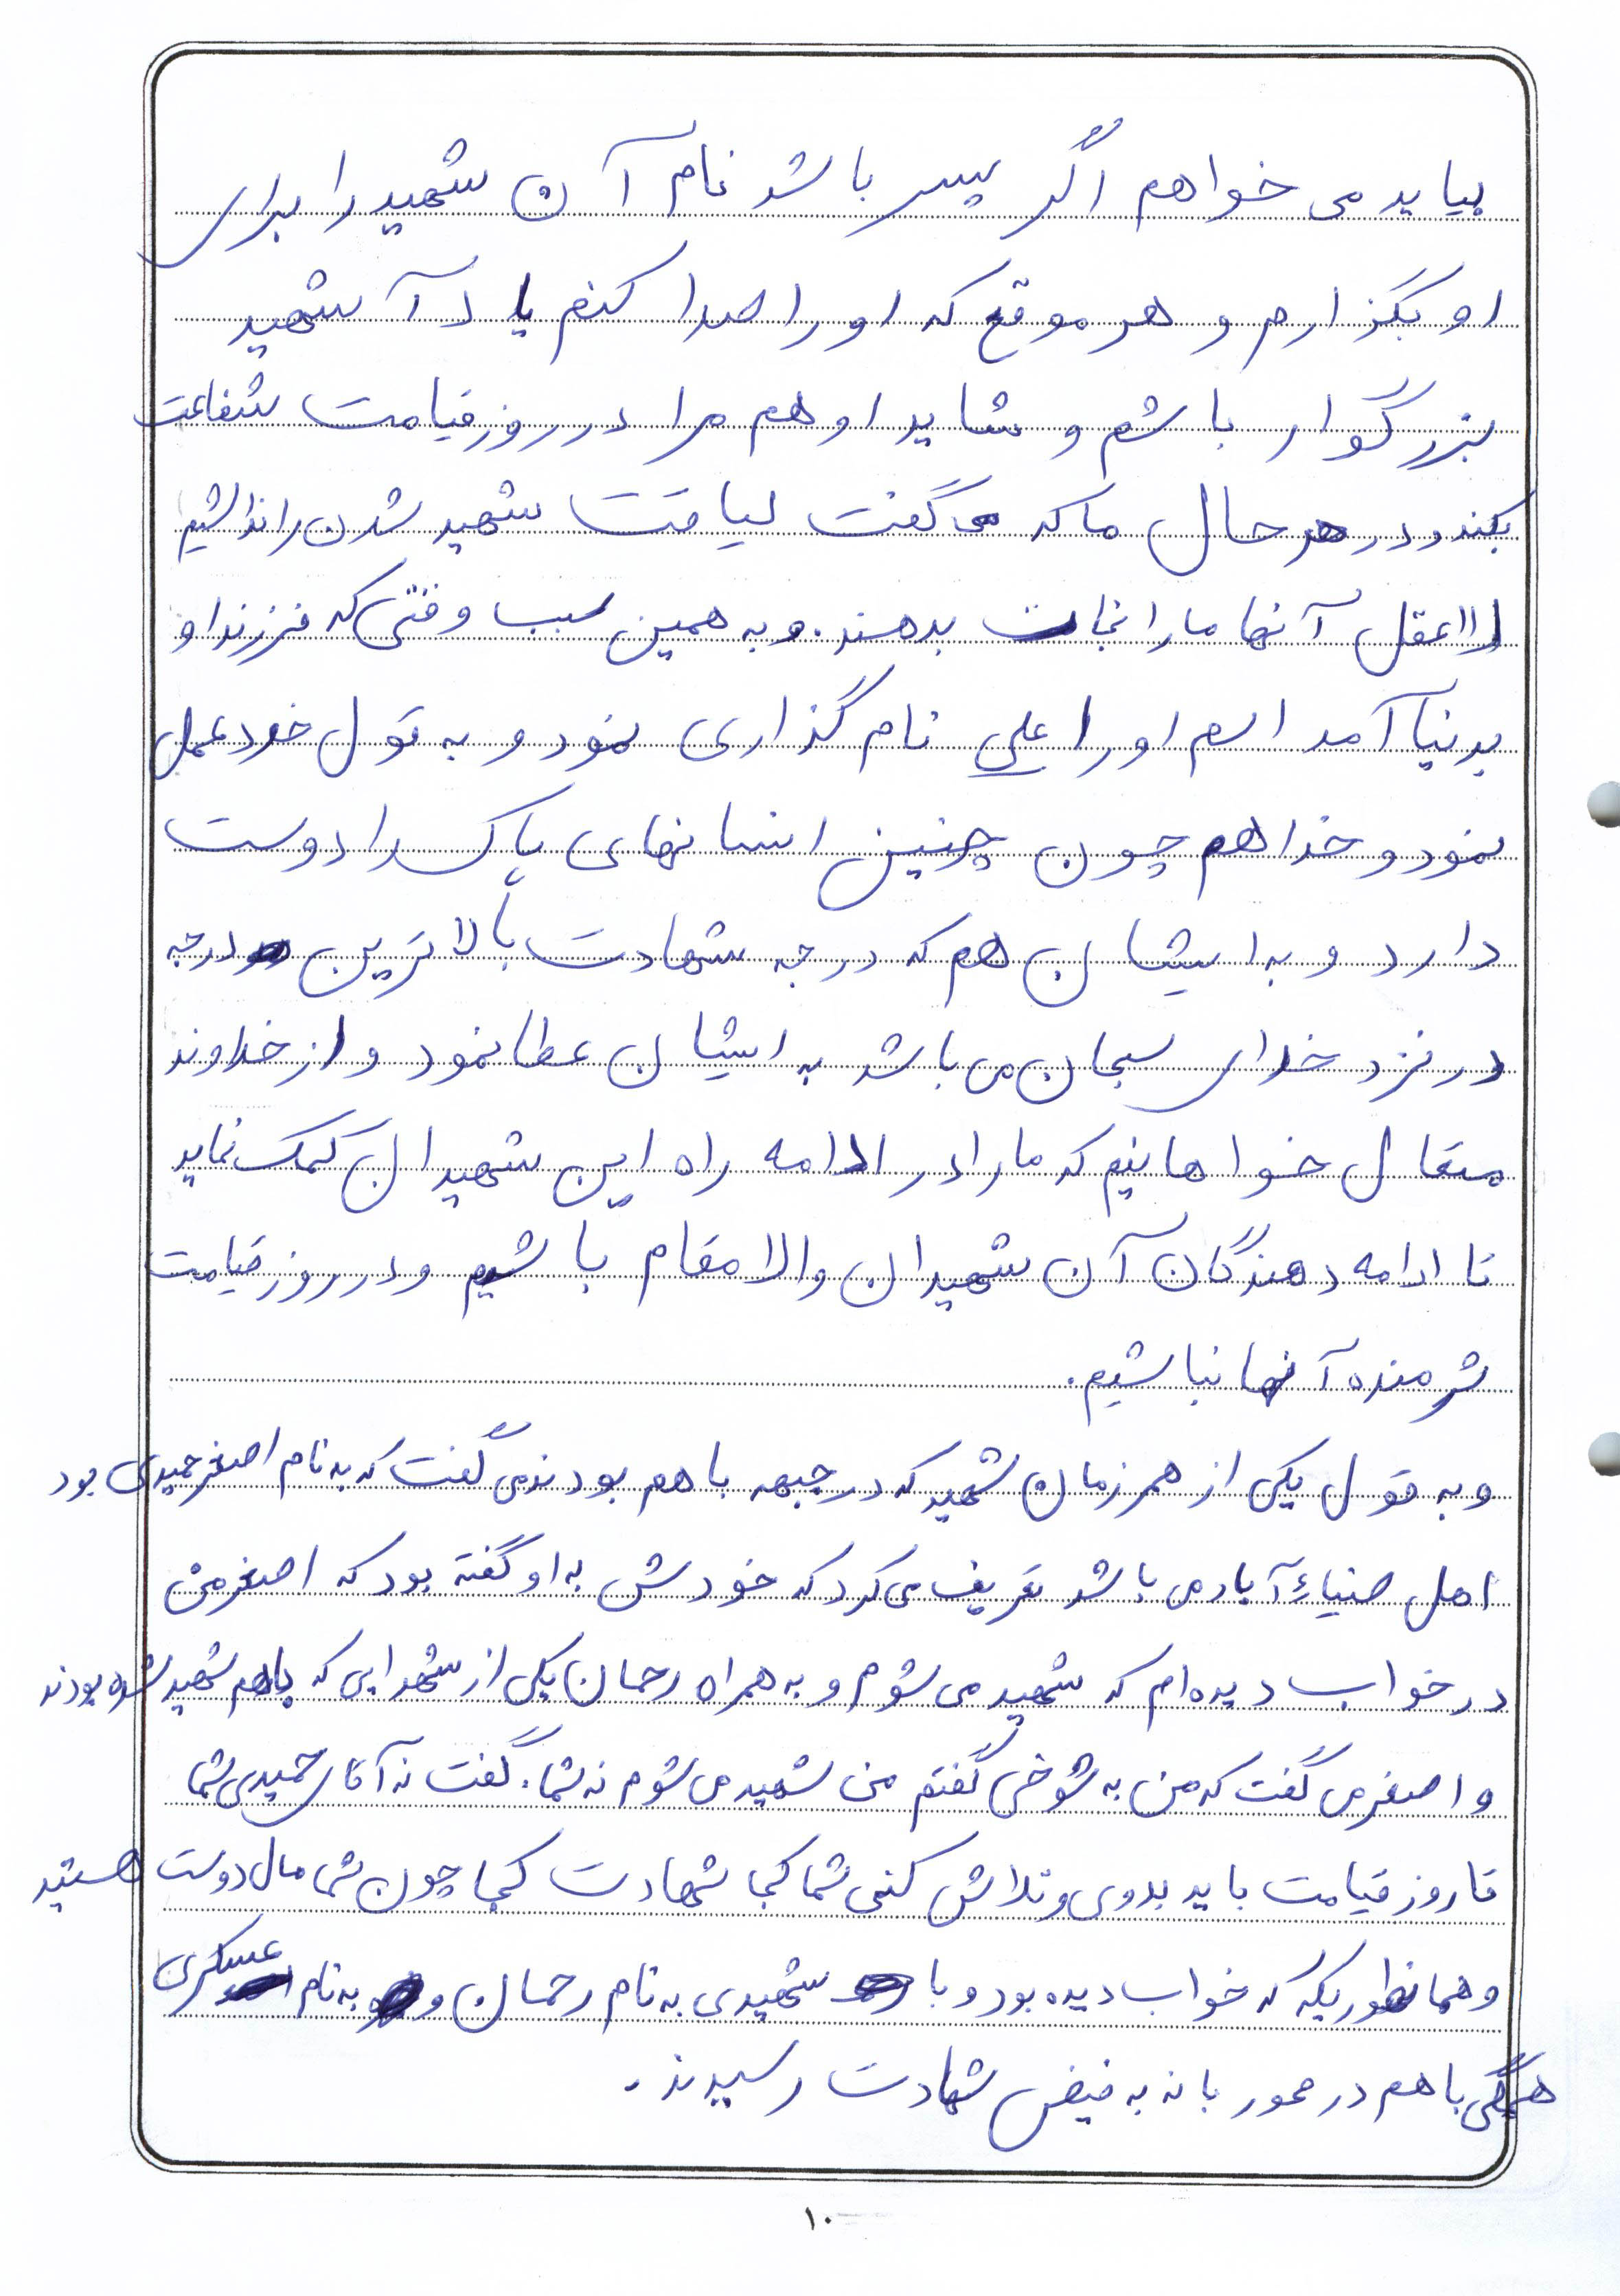 بیاید می خواهم اگر پسر باشد نام آن شهید را برای
او بگزارم و هر موقع که او را صدا کنم یاد آ شهید
بزرگوار باشم و شاید او هم مرا در روز قیامت شفاعت
بکند و در هر حال ما که می گفت لیاقت شهید شدن را نداشتیم
لااعقل آنها ما را نجات بدهند. و به همین سبب وقتی که فرزند او
بدنیا آمد اسم او را علی نام گذاری نمود و به قول خود عمل
نمود و خدا هم چون چنین انسانهای پاک را دوست
دارد و به ایشان هم که درجه شهادت بالاترین درجه
در نزد خدای سبحان می باشد به ایشان عطا نمود و از خداوند
متعال خواهانیم که ما را در ادامه راه این شهیدان کمک نماید
تا ادامه دهندگان آن شهیدان والا مقام باشیم و در روز قیامت
شرمنده آنها نباشیم.
و به قول یکی از همرزمان شهید که در جبهه با هم بودند می گفت که به نام اصغر حمیدی بود
اهل ضیاءآباد می باشد تعریف می کرد که خودش به او گفته بود که اصغر من
در خواب دیده ام که شهید می شوم و به همراه رحمان یکی از شهدایی که باهم شهید شده بودند
و اصغر می گفت که من به شوخی گفتم من شهید می شوم نه شما. گفت نه آقای حمیدی شما
تا روز قیامت باید بدوی و تلاش کنی شما کجا شهادت کجا چون شما مال دوست هستید
و همانطوریکه که خواب دیده بود و با شهیدی به نام رحمان و به نام عسکری
همگی با هم در محور بانه به فیض شهادت رسیدند.
۱۰